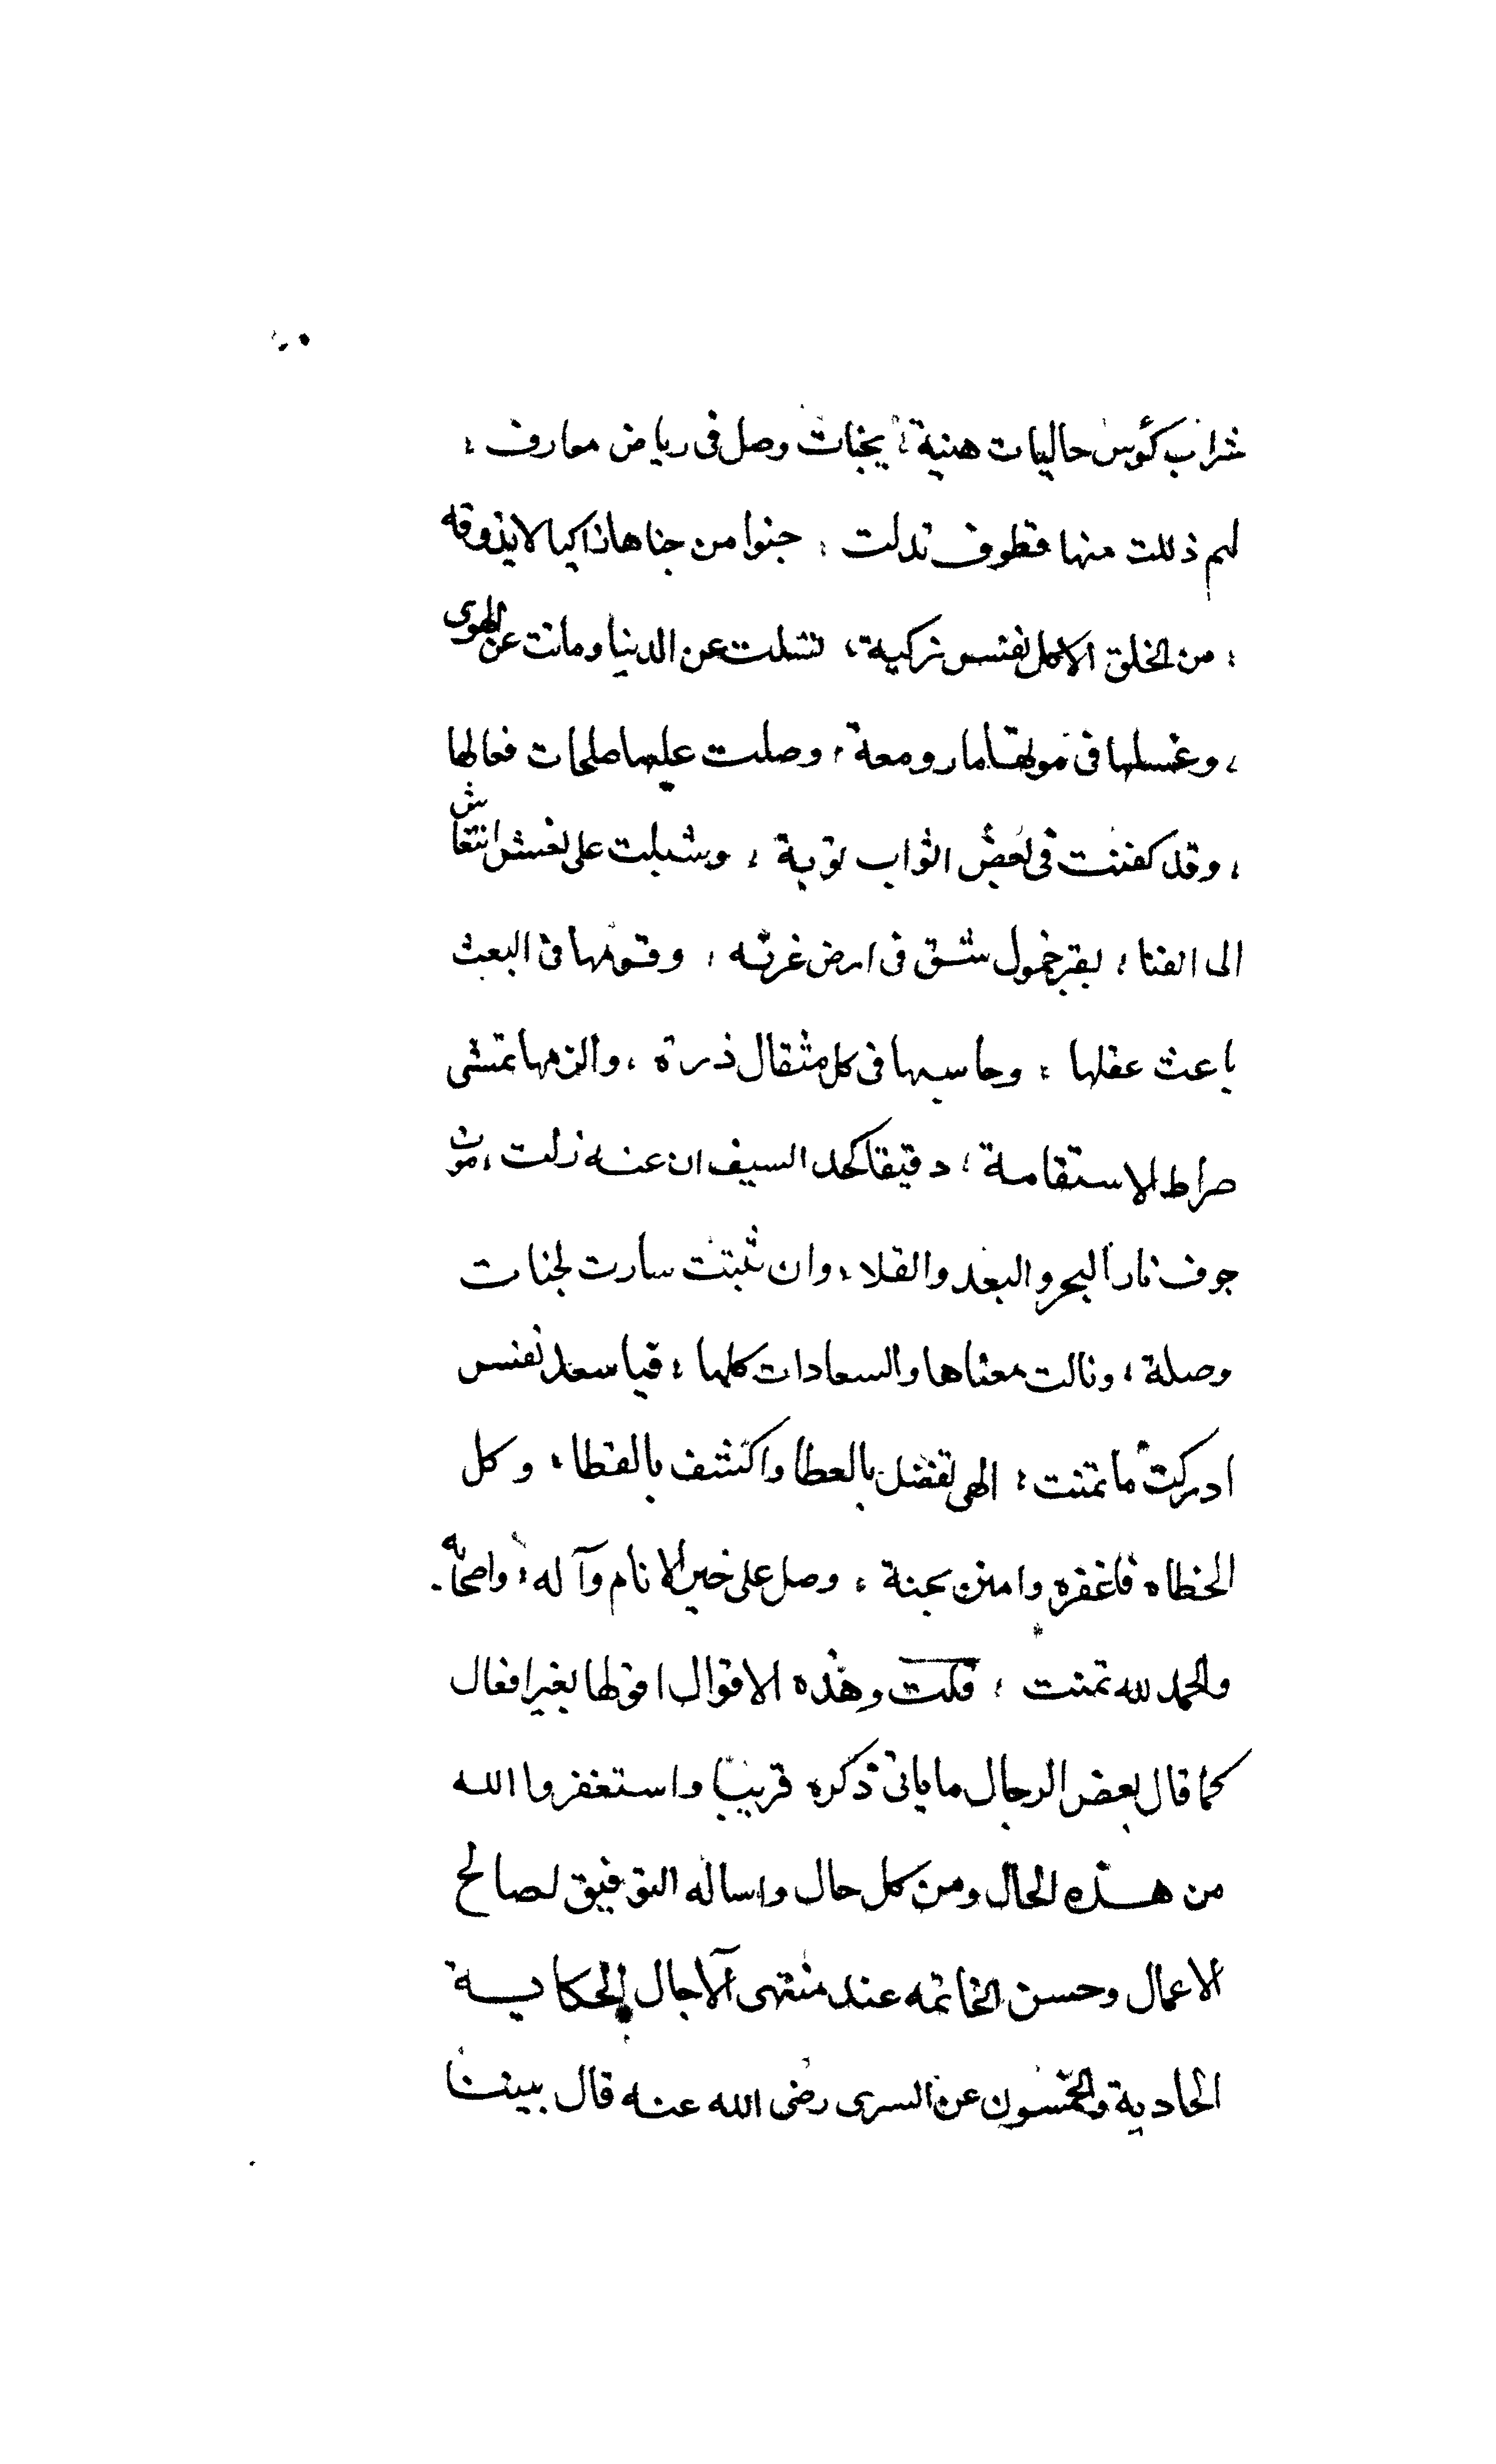 شراب كؤس حاليات هنية ؛ بجنات وصل فى رياض معارف ؛
لهم ذللت منها قطوف تدلت ؛ جنوا من جناها ذاكيا لا يذوقه
؛ من الخلق الا كل نفس زكية ، تسلت عن الدنيا وماتت عن الهوى
، وغسلها فى موتها ما رو معة ، وصلت عليها صلحات فعالها
، وقد كفنت فى بعض اثواب توبة ، وشيلت على نعش انتعاش
الى الفنا ؛ بقبر خمول شق فى ارض غربه ، وقومها فى البعث
باعث عقلها ؛ وحاسبها فى كل مثقال ذرة ، والزمها تمشى
صراط الاستقامة ؛ دقيقا كحد السيف ان عنه زلت ،
جوف نار البحر والبعد والقلا ، وان ثبتت سارت لجنات
وصلة ؛ ونالت معناها والسعادات كلها ؛ فيا سعد نفس
ادركت ما تمنت ؛ الهى تفضل بالعطا واكشف بالغطا ؛ وكل
الخطاه فاغفره وامنن بجنة ، وصل على خير الانام وآله ؛ واصحابه
والحمد لله تمت ؛ قلت وهذه الاقوال اقولها بغير افعال
كما قال بعض الرجال ما ياتى ذكره قريبا واستغفروا الله
من هذه الحال ومن كل حال واساله التوفيق لصالح
الاعمال وحسن الخاتمه عند منتهى الآجال الحكاية
الحادية والخمسون عن السرى رضى الله عنه قال بينا